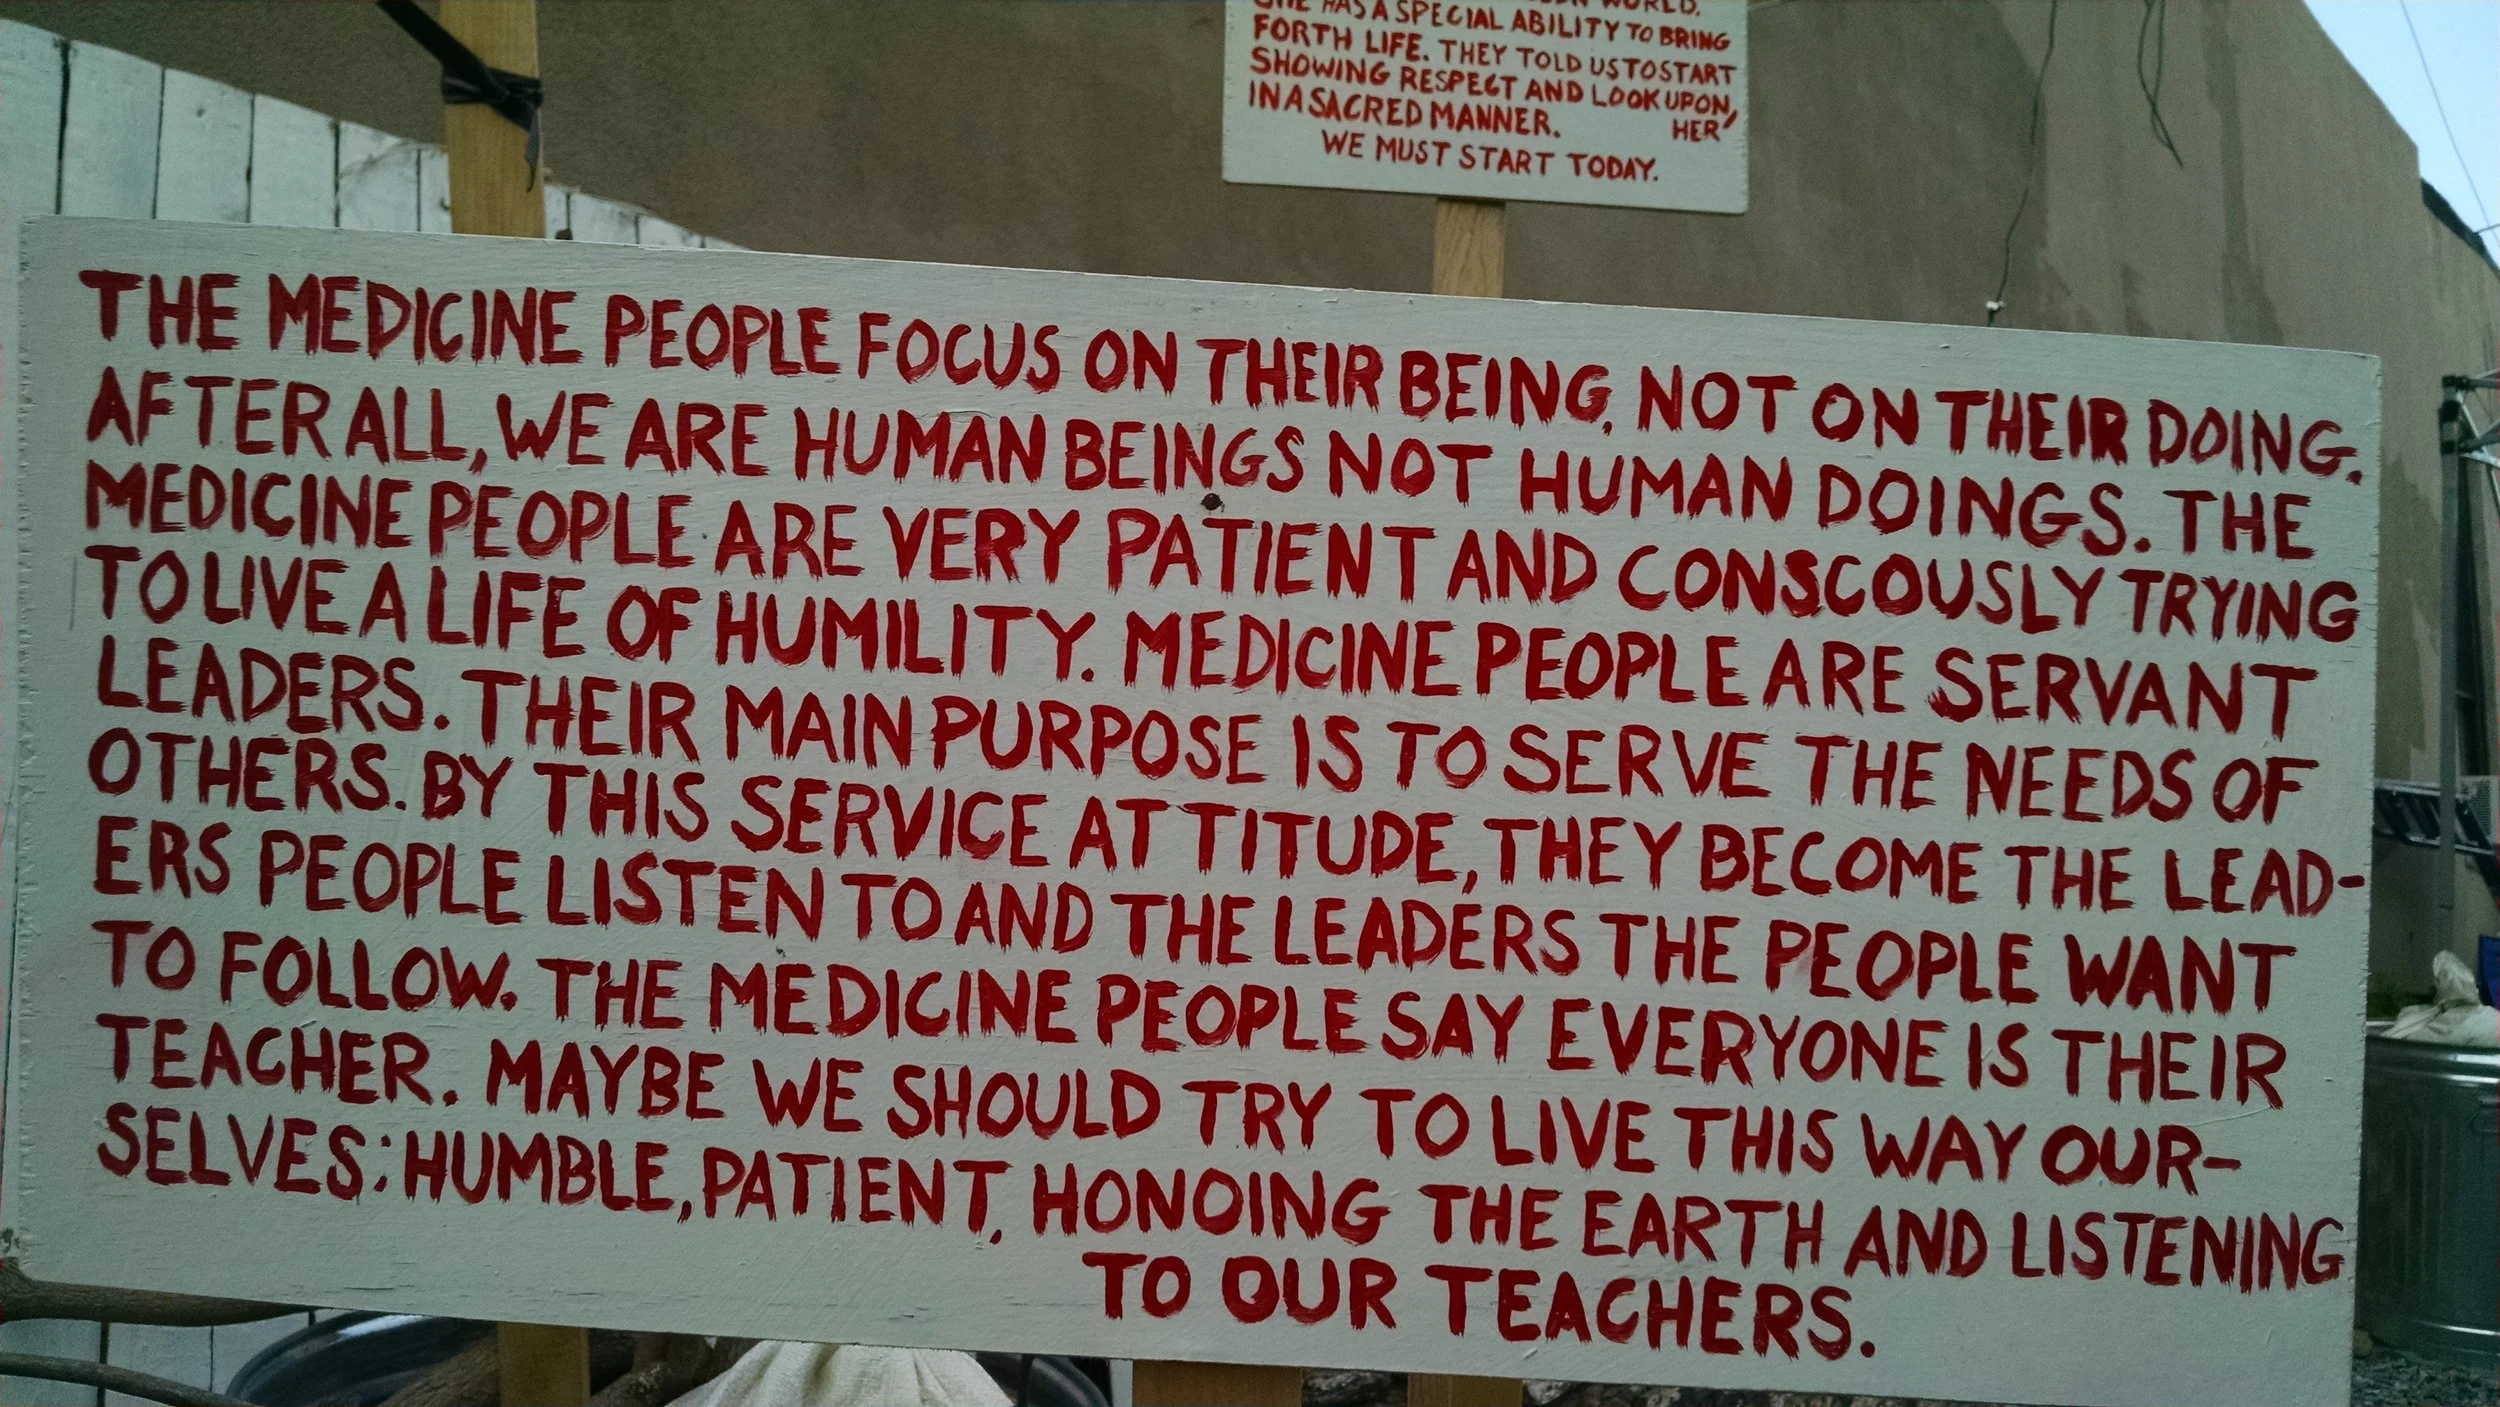 WORLD.
HAS A SPECIAL ABILITY TO BRING
FORTH LIFE. THEY TOLD US TO START
SHOWING RESPECT AND LOOK UPON,
IN A SACRED MANNER. HER
WE MUST START TODAY.
THE MEDICINE PEOPLE FOCUS ON THEIR BEING, NOT ON THEIR DOING.
AFTER ALL, WE ARE HUMAN BEINGS NOT HUMAN DOINGS. THE
MEDICINE PEOPLE ARE VERY PATIENT AND CONSCOUSLY TRYING
TO LIVE A LIFE OF HUMILITY. MEDICINE PEOPLE ARE SERVANT
LEADERS. THEIR MAIN PURPOSE IS TO SERVE THE NEEDS OF
OTHERS. BY THIS SERVICE ATTITUDE, THEY BECOME THE LEAD-
ERS PEOPLE LISTEN TO AND THE LEADERS THE PEOPLE WANT
TO FOLLOW. THE MEDICINE PEOPLE SAY EVERYONE IS THEIR
TEACHER. MAYBE WE SHOULD TRY TO LIVE THIS WAY OUR-
SELVES; HUMBLE, PATIENT, HONOING THE EARTH AND LISTENING
TO OUR TEACHERS.